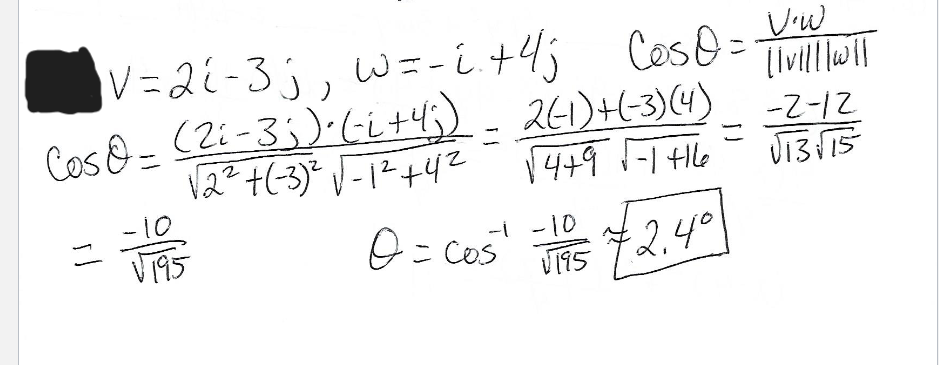 v = 2i - 3j, w = -i + 4j   Cosθ = v·w / ||v|| ||w||
Cosθ = (2i-3j)·(-i+4j) / √2²+(-3)² √-1²+4² = 2(-1)+(-3)(4) / √4+9 √-1+16 = -2-12 / √13 √15
= -10 / √195   θ = cos⁻¹ -10 / √195 ≈ 2.4°